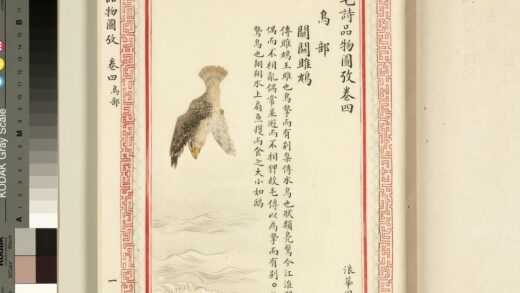 毛詩品物圖攷卷四
浪華
鳥部
關關雎鳩
傳雎鳩王雎也鳥摯而有別集傳水鳥也狀類鳧鷖今江淮
偶而不相亂偶常並遊而不相狎故毛傳以為摯而有別。
鷙鳥也翱翔水上扇魚攫而食之大小如鴟
品物圖攷 卷四鳥部 一
KODAK Gray Scale